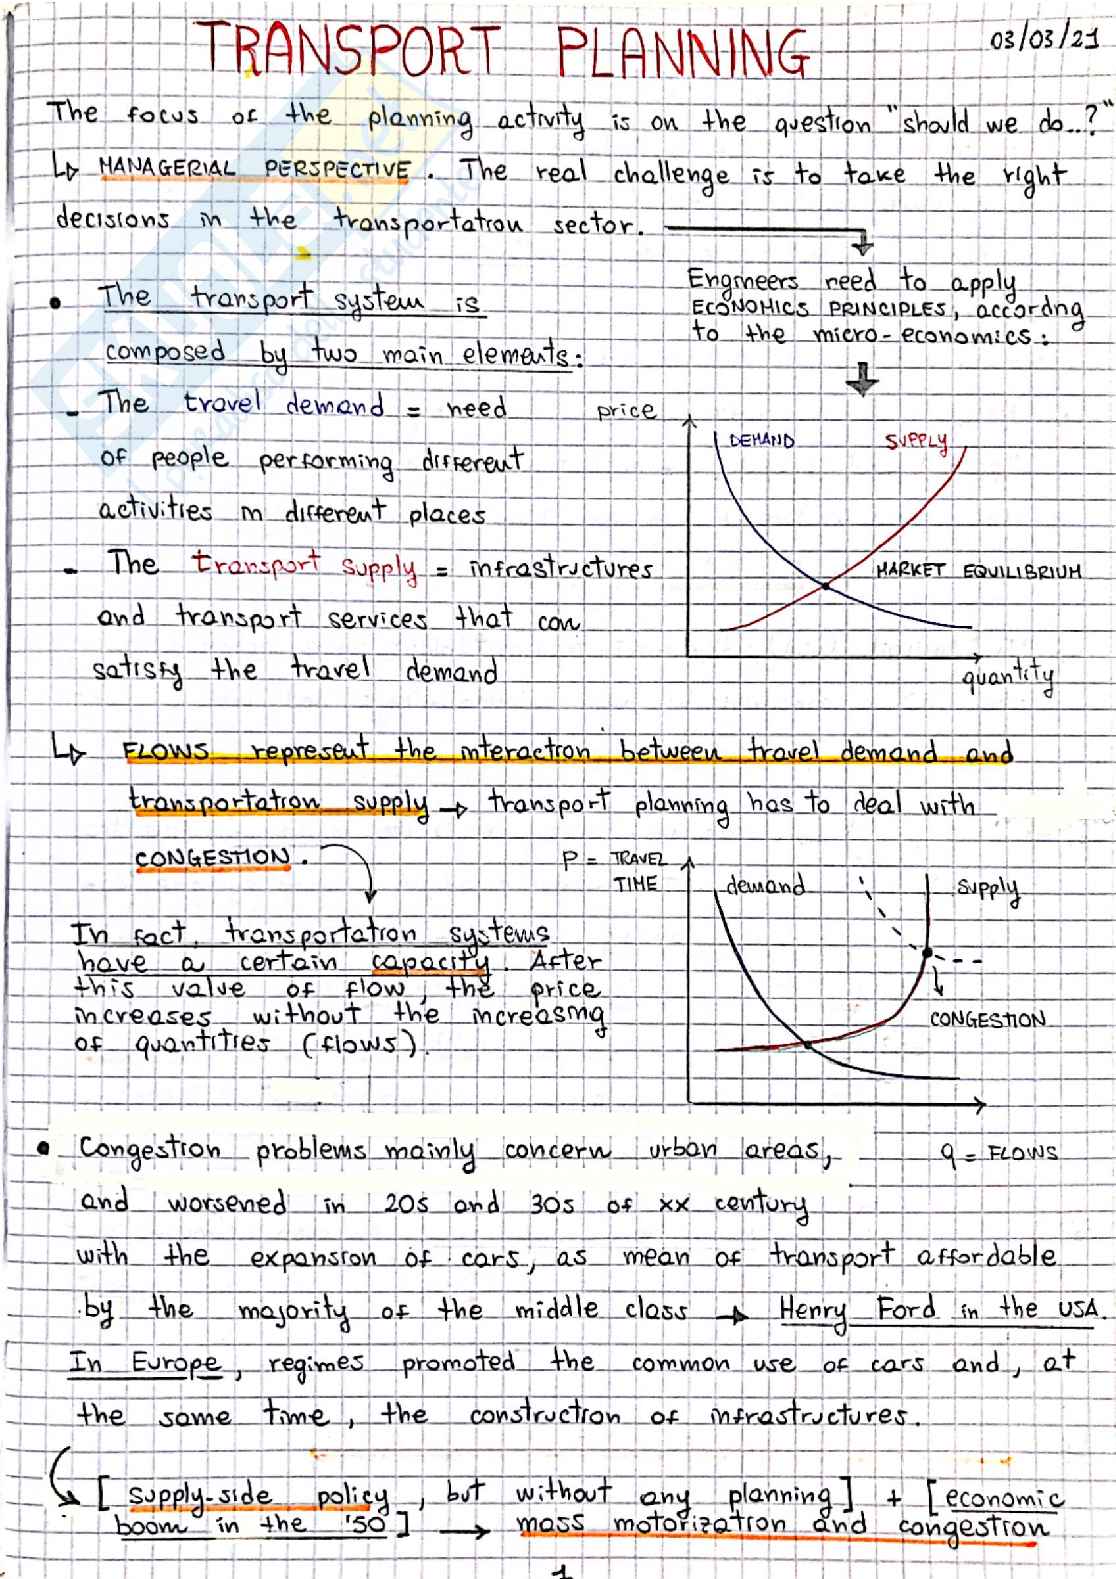 TRANSPORT PLANNING
03/03/21
The focus of the planning activity is on the question "should we do..?"
↳ MANAGERIAL PERSPECTIVE. The real challenge is to take the right
decisions in the transportation sector.
Engineers need to apply
ECONOMICS PRINCIPLES, according
to the micro-economics:
• The transport system is
composed by two main elements:
- The travel demand = need
of people performing different
activities in different places
- The transport supply = infrastructures
and transport services that can
satisfy the travel demand
price
DEMAND
SUPPLY
MARKET EQUILIBRIUM
quantity
↳ FLOWS represent the interaction between travel demand and
transportation supply → transport planning has to deal with
CONGESTION.
In fact, transportation systems
have a certain capacity. After
this value of flow, the price
increases without the increasing
of quantities (flows).
P = TRAVEL
TIME
demand
supply
CONGESTION
q = FLOWS
• Congestion problems mainly concern urban areas,
and worsened in 20s and 30s of xx century
with the expansion of cars, as mean of transport affordable
by the majority of the middle class → Henry Ford in the USA.
In Europe, regimes promoted the common use of cars and, at
the same time, the construction of infrastructures.
[supply-side policy, but without any planning] + [economic
boom in the '50] → mass motorization and congestion
1